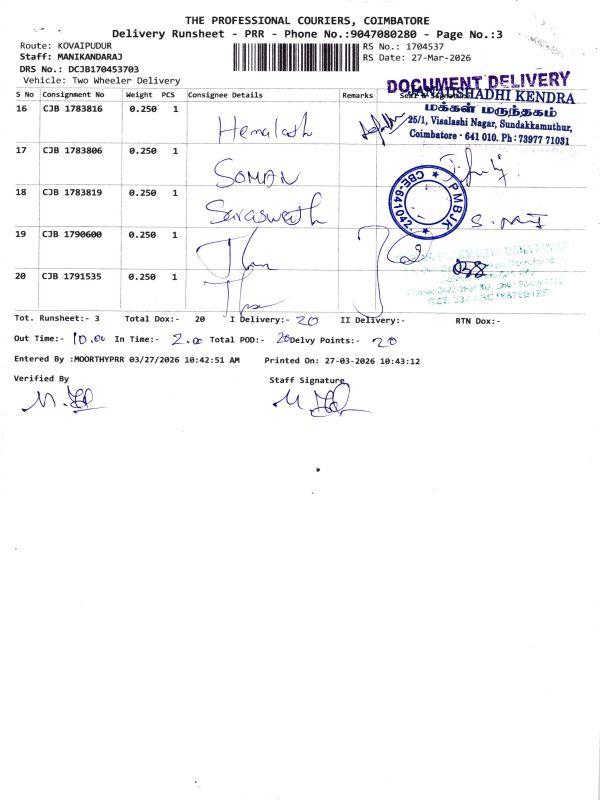 THE PROFESSIONAL COURIERS, COIMBATORE
Delivery Runsheet - PRR - Phone No.:9047080280 - Page No.:3
Route: KOVAIPUDUR
RS No.: 1704537
Staff: MANIKANDARAJ
RS Date: 27-Mar-2026
DRS No.: DCJB170453703
Vehicle: Two Wheeler Delivery
DOCUMENT DELIVERY
S No Consignment No Weight PCS Consignee Details Remarks
JANAUSHADHI KENDRA
மக்கள் மருந்தகம்
25/1, Visalashi Nagar, Sundakkamuthur,
Coimbatore - 641 010. Ph : 73977 71031
16 CJB 1783816 0.250 1
17 CJB 1783806 0.250 1 SOMAN
PMBJK
CBE-641042
18 CJB 1783819 0.250 1
19 CJB 1790600 0.250 1
20 CJB 1791535 0.250 1
Tot. Runsheet:- 3 Total Dox:- 20 I Delivery:- 20 II Delivery:- RTN Dox:-
Out Time:- 10.00 In Time:- 2.00 Total POD:- 20 Delvy Points:- 20
Entered By :MOORTHYPRR 03/27/2026 10:42:51 AM Printed On: 27-03-2026 10:43:12
Verified By Staff Signature